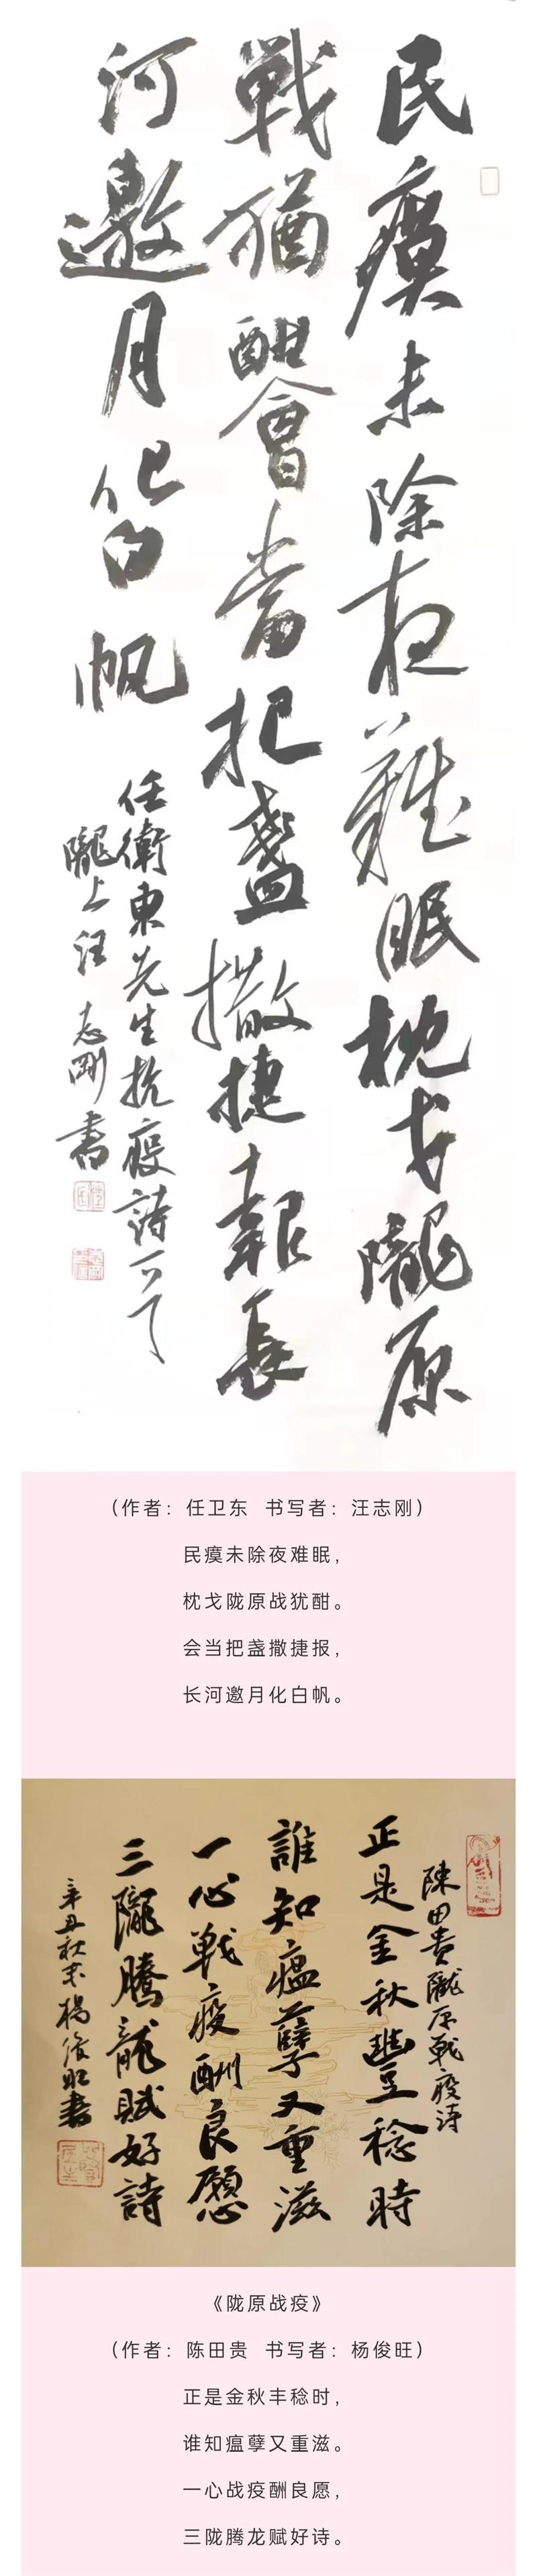 民瘼未除夜難眠枕戈隴原
戰猶酣會當把盞撒捷報長
河邀月化白帆
任衛東先生抗疫詩一首
隴上汪志剛書
（作者：任卫东 书写者：汪志刚）
民瘼未除夜难眠，
枕戈陇原战犹酣。
会当把盏撒捷报，
长河邀月化白帆。
陳田貴隴原戰疫诗
正是金秋豐稔時
誰知瘟孽又重滋
一心戰疫酬良願
三隴騰龍賦好詩
辛丑秋末楊俊旺書
《陇原战疫》
（作者：陈田贵 书写者：杨俊旺）
正是金秋丰稔时，
谁知瘟孽又重滋。
一心战疫酬良愿，
三陇腾龙赋好诗。